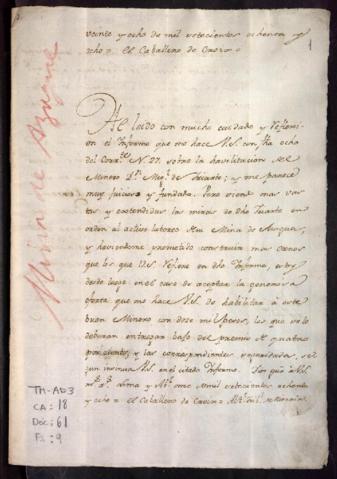 veinte y ocho de mil setecientos ochenta y
ocho = el Caballero de Croix =
1
He leido con mucho cuidado y reflexion
el Informe que me hace V.S. con fha ocho
del Corr.te N. 27. sobre la havilitacion del
Minero D.n Mig.l de Iriarte; y me parece
muy juicioso y fundado. Pero siendo mas vas
tas y extendidas las miras de dho Iriarte en
orden al activo laboreo su Mina de Azogues,
y haviendome prometido construir mas ornos
que los que V.S. refiere en dho Informe, estoy
desde luego en el caso de aceptar la generosa
oferta que me hace V.S. de habilitar á este
buen Minero con doze mil pesos, los que solo
deberan entregar bajo del premio de quatro
por ciento, y las correspondientes seguridades, se
gun insinua V.S. en el citado Informe. Dios gue á V.S.
m.s a.s Lima y
de mil setecientos ochenta
y ocho = el Caballero de Croix =
Mina de Azogue
TM-AD3
CA: 18
Doc: 61
Fs: 9